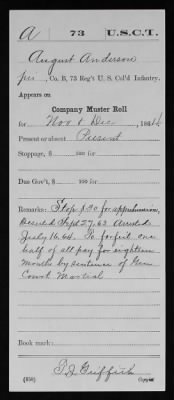 A 73 U.S.C.T.
August Anderson
Co. B, 73 Reg't U. S. Col'd Infantry.
Appears on
Company Muster Roll
for Nov & Dec, 1864.
Present or absent Present
Stoppage, $ 100 for
Due Gov't, $ 100 for
Remarks: Stop $30 for apprehension,
Deserted Sept 27, 63 Arrested
July 16, 64. To forfeit one
half of all pay for eighteen
months by sentence of Gen
Court Martial
Book mark:
Griffith
(358) Copyist.